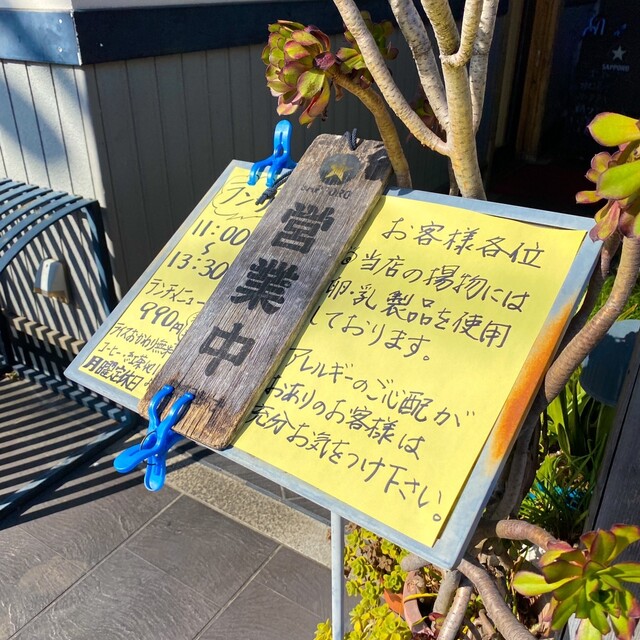 ランチ
11:00
〜
13:30
ランチメニュー
990円
ライスおかわり無料
コーヒー・お茶付
月曜定休日
営業中
お客様各位
当店の揚物には
卵・乳製品を使用
しております。
アレルギーのご心配が
おありのお客様は
充分お気をつけ下さい。
SAPPORO